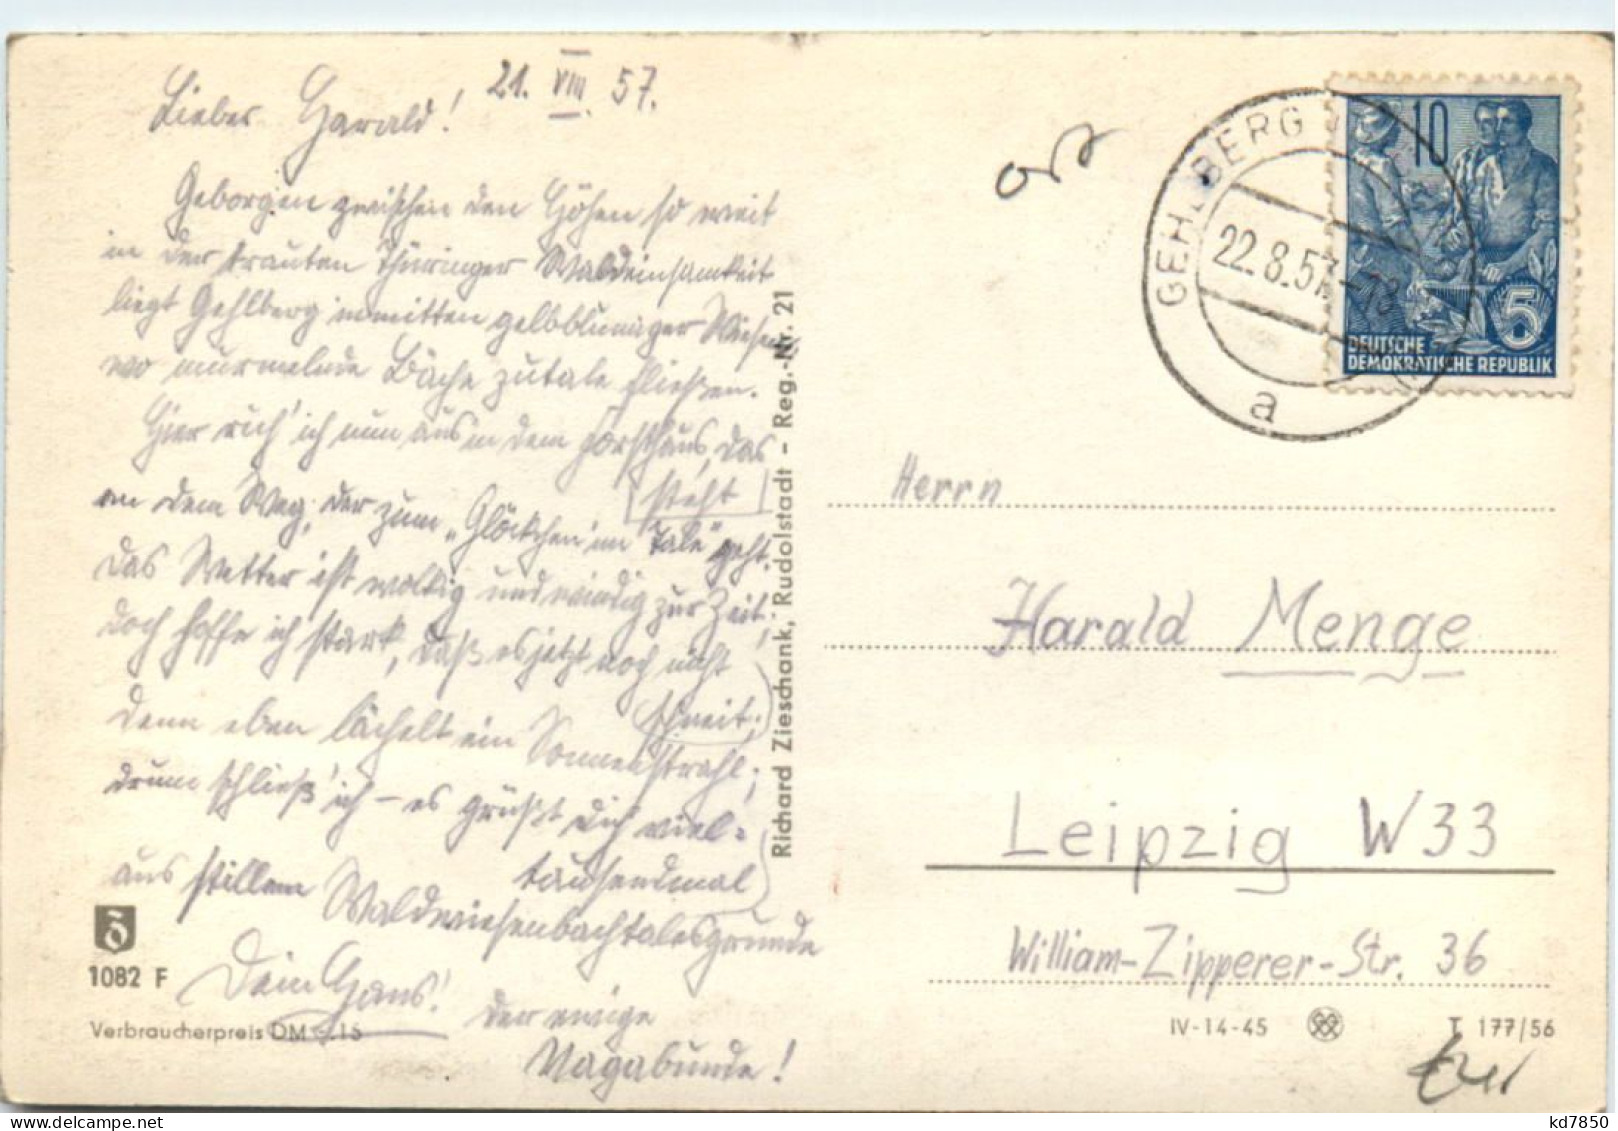 21. VIII. 57.
Lieber Harald!
Geborgen zwischen den Höhen so weit
in der trauten Thüringer Waldeinsamkeit
liegt Gehlberg inmitten gelbblumiger Wiesen,
wo murmelnde Bäche zutale fließen.
Hier ruh' ich nun aus in dem Forsthaus, das
steht
an dem Weg, der zum „Glöckchen im Tale" geht.
Das Wetter ist wolkig und windig zur Zeit,
doch hoffe ich stark, daß es jetzt noch nicht
schneit;
denn eben lächelt ein Sonnenstrahl;
drum schließ' ich – es grüßt dich viel-
tausendmal
aus stillem Waldwiesenbachtalesgrunde
Dein Hans!
der ewige
Vagabunde!
1082 F
Verbraucherpreis DM -.15
Richard Zieschank, Rudolstadt - Reg.-Nr. 21
GEHLBERG
22.8.57-18
a
10
5
DEUTSCHE
DEMOKRATISCHE REPUBLIK
Herrn
Harald Menge
Leipzig W 33
William-Zipperer-Str. 36
IV-14-45
T 177/56
kd7850